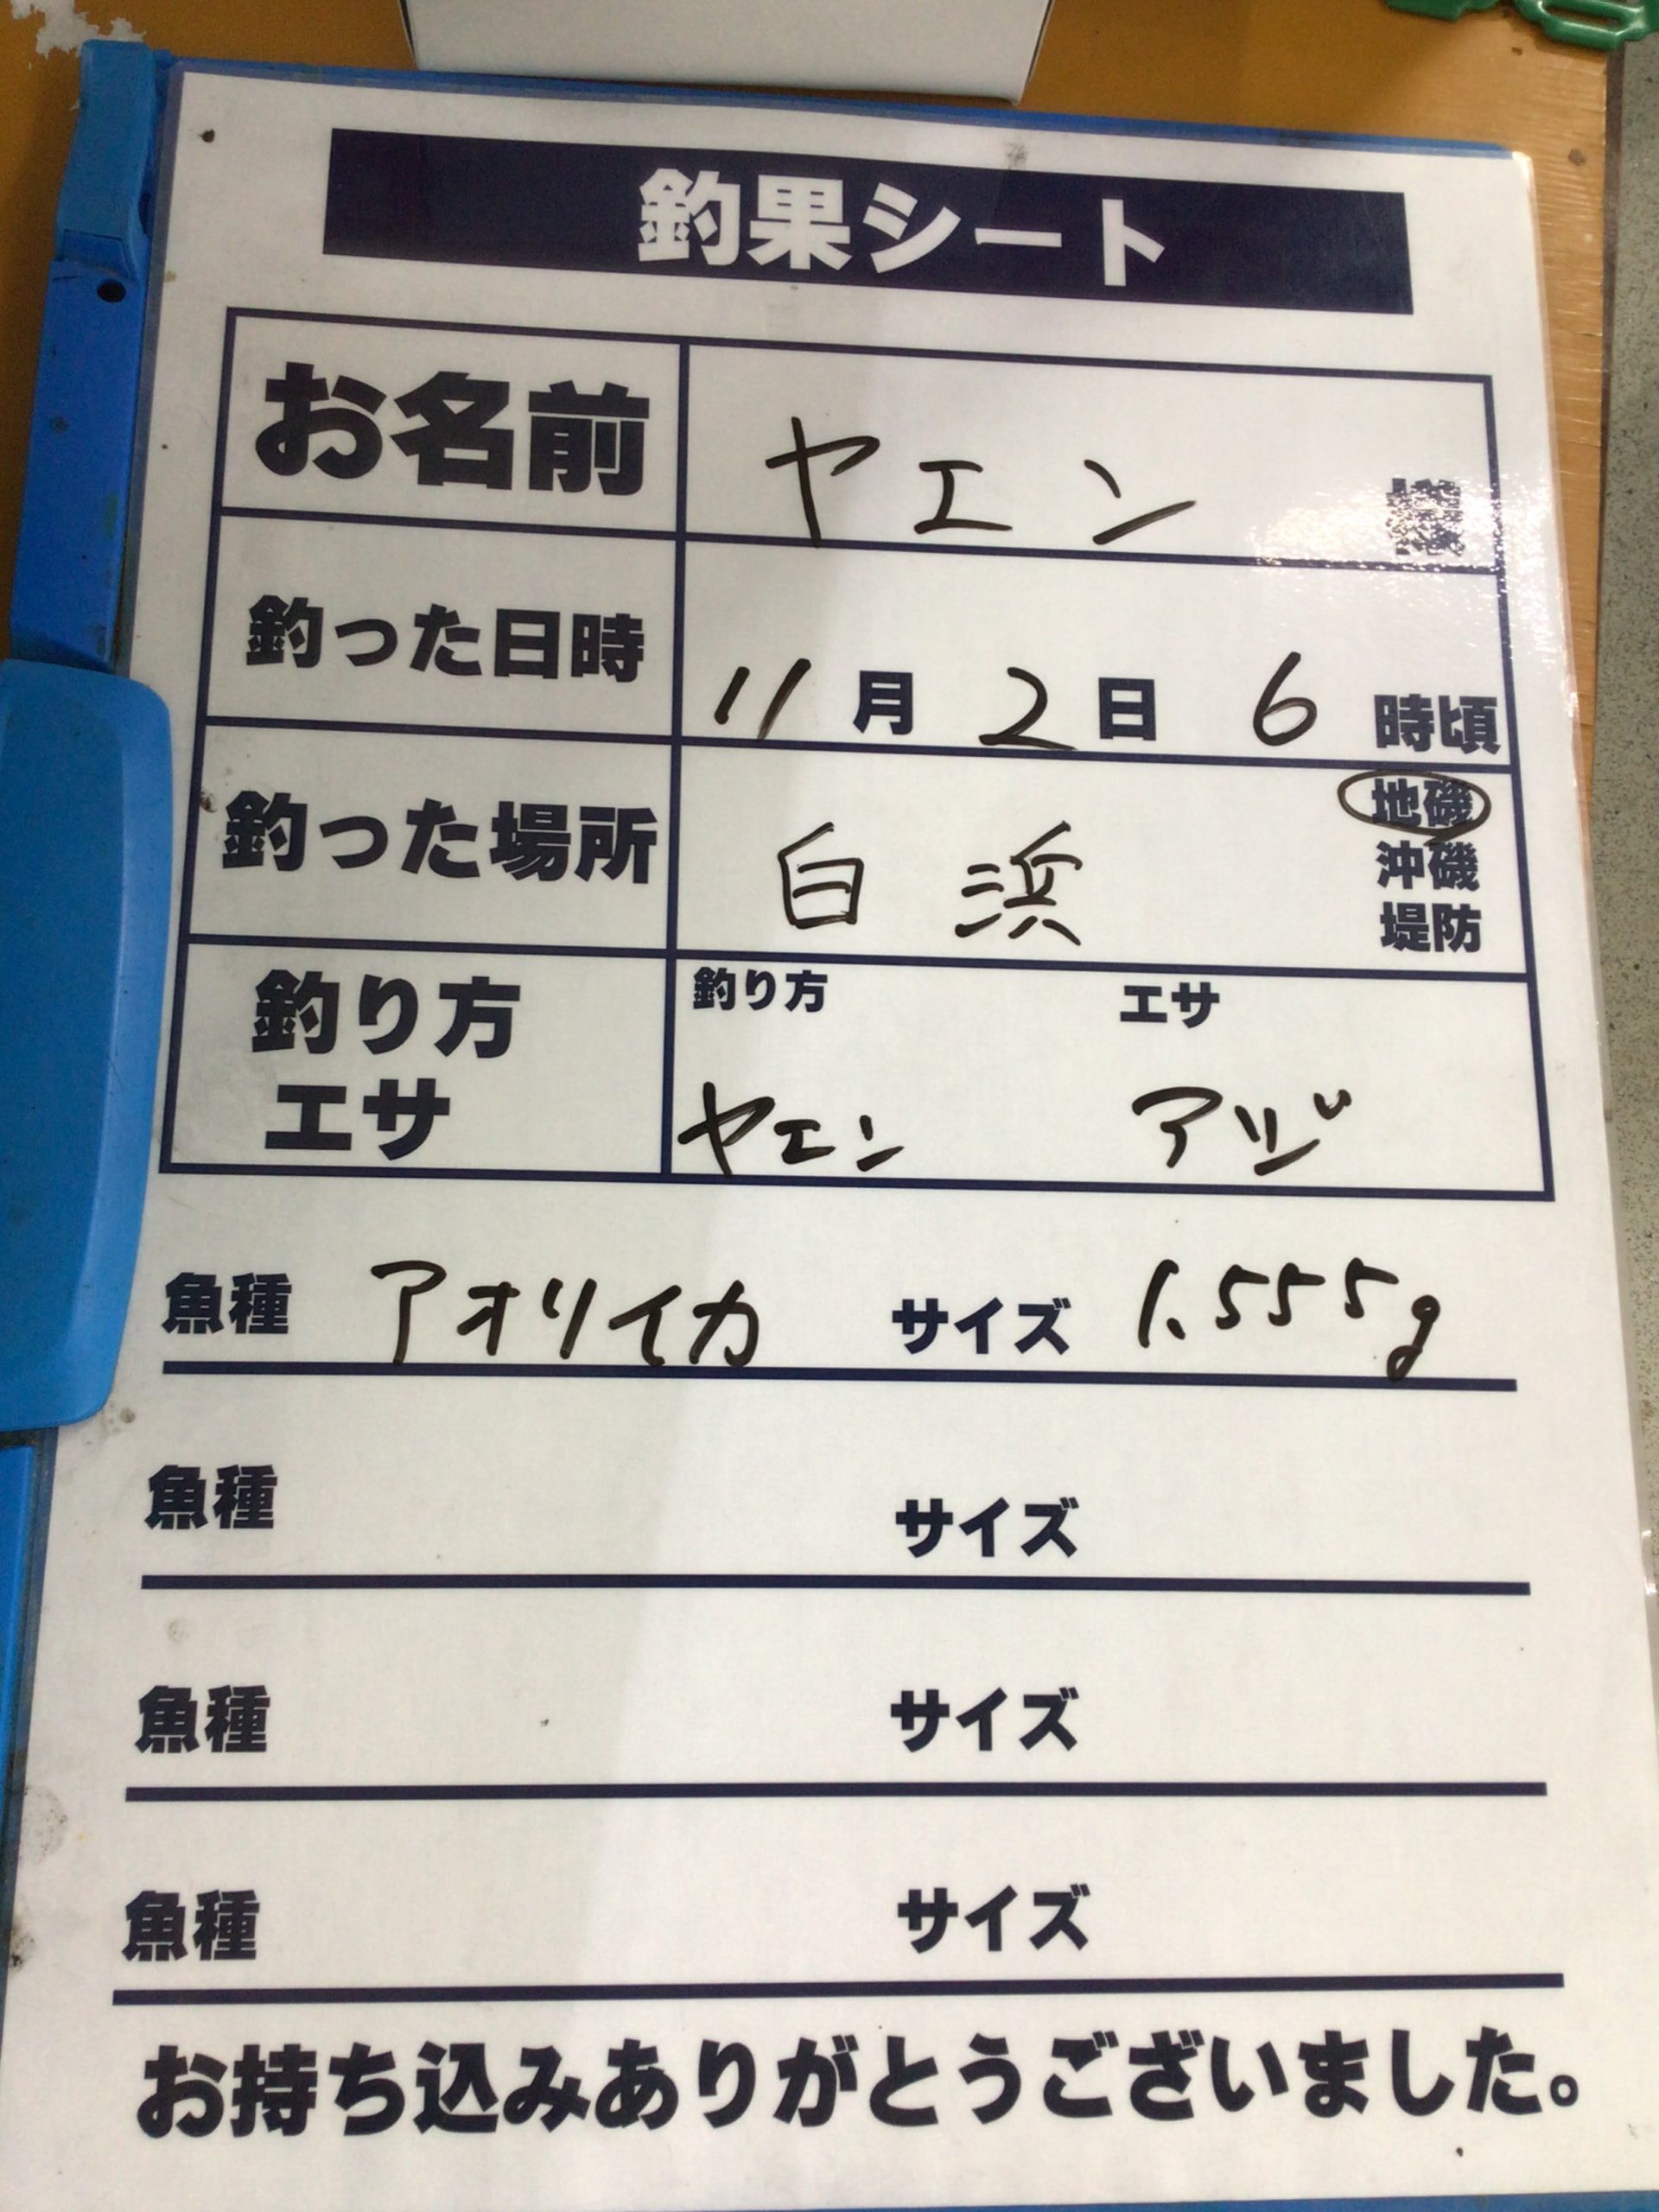 釣果シート
お名前 ヤエン 様
釣った日時 11月2日 6時頃
釣った場所 白浜 地磯
沖磯
堤防
釣り方 エサ 釣り方 エサ
ヤエン アジ
魚種 アオリイカ サイズ 1.555g
魚種 サイズ
魚種 サイズ
魚種 サイズ
お持ち込みありがとうございました。